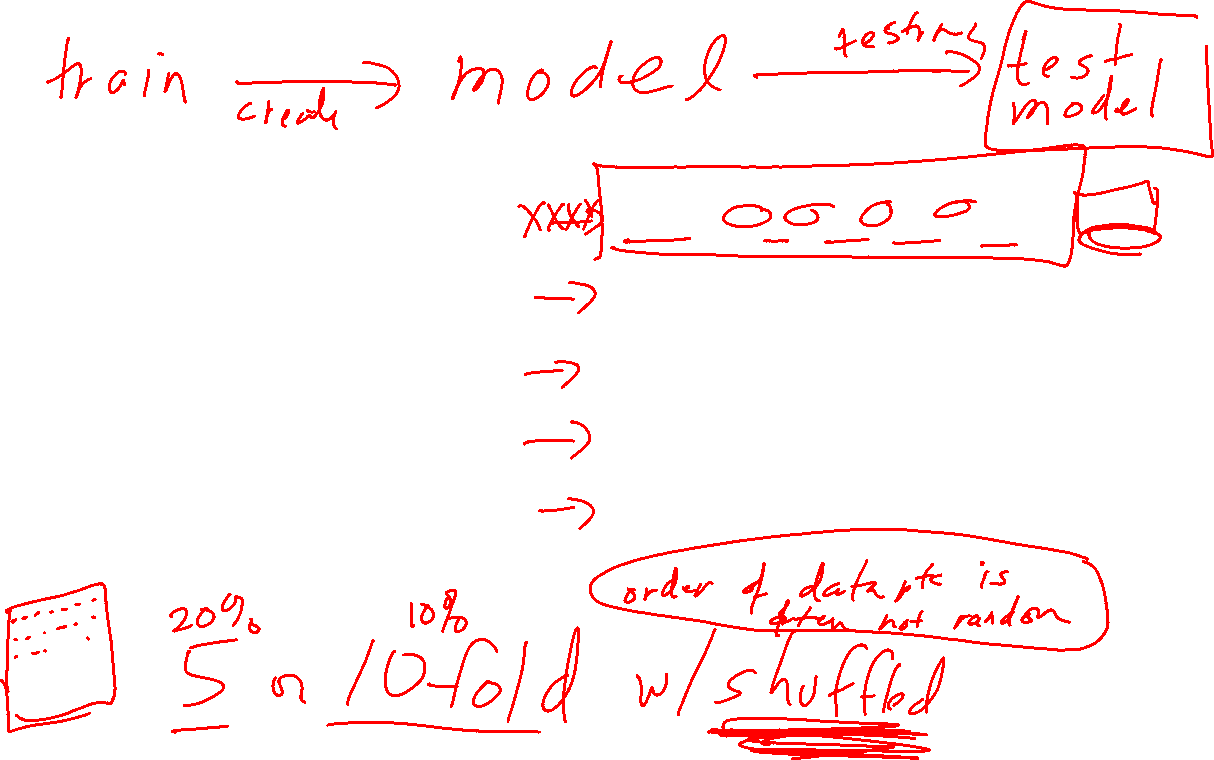 train create model testing test model
XXXX
order of data pts is often not random
20% 10%
5 or 10-fold w/ shuffled